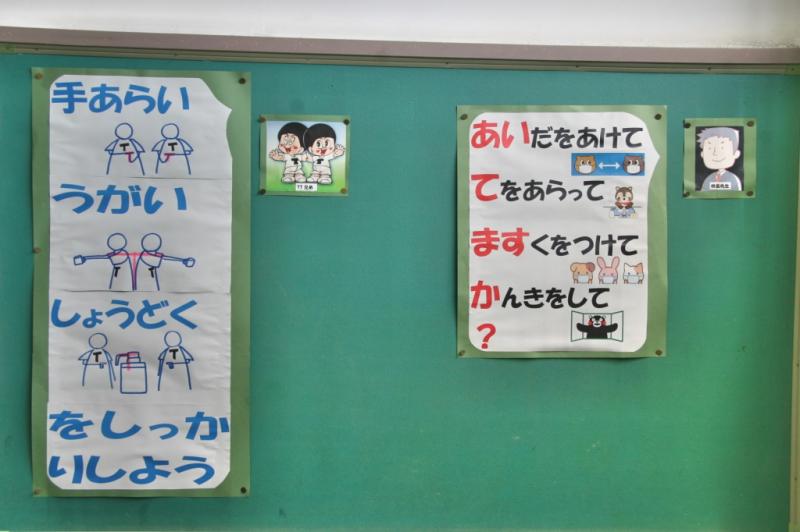 手あらい
うがい
しょうどく
をしっか
りしよう
TT兄弟
あいだをあけて
てをあらって
ますくをつけて
かんきをして
?